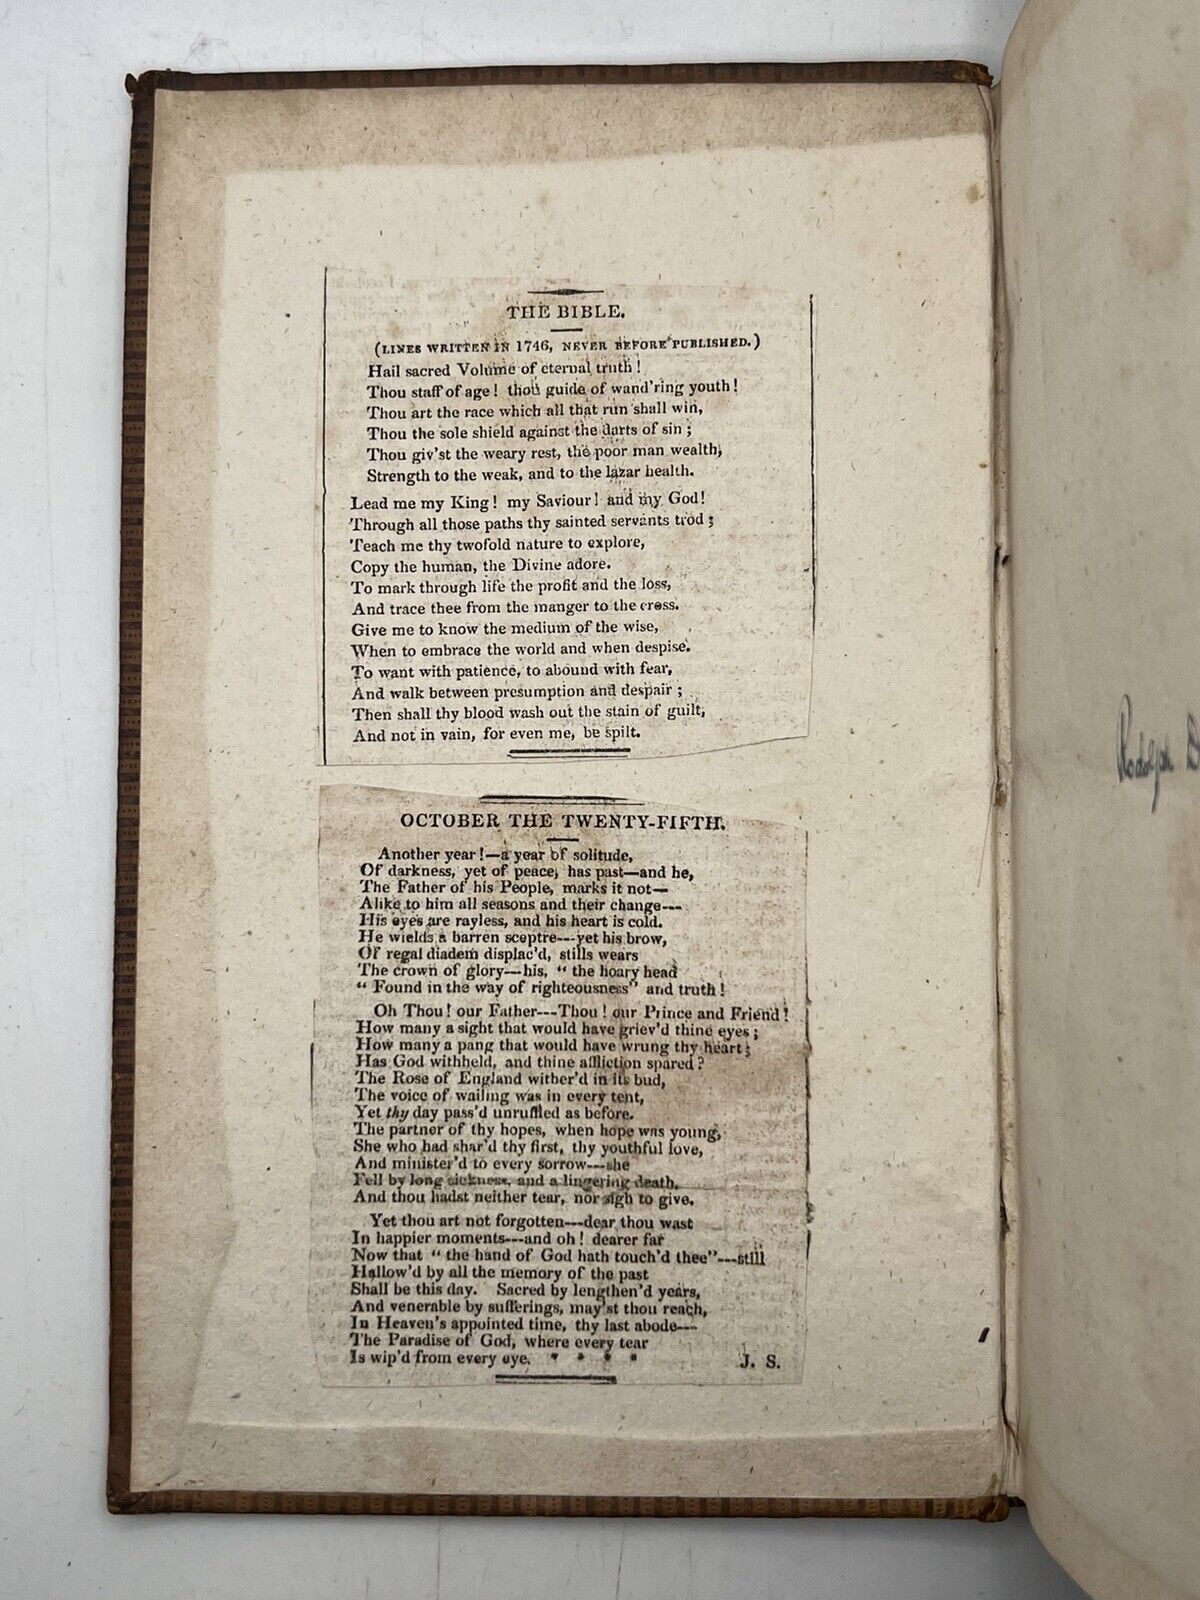 THE BIBLE.
(LINES WRITTEN IN 1746, NEVER BEFORE PUBLISHED.)
Hail sacred Volume of eternal truth!
Thou staff of age! thou guide of wand'ring youth!
Thou art the race which all that run shall win,
Thou the sole shield against the darts of sin;
Thou giv'st the weary rest, the poor man wealth,
Strength to the weak, and to the lazar health.
Lead me my King! my Saviour! and my God!
Through all those paths thy sainted servants trod;
Teach me thy twofold nature to explore,
Copy the human, the Divine adore.
To mark through life the profit and the loss,
And trace thee from the manger to the cross.
Give me to know the medium of the wise,
When to embrace the world and when despise.
To want with patience, to abound with fear,
And walk between presumption and despair;
Then shall thy blood wash out the stain of guilt,
And not in vain, for even me, be spilt.
OCTOBER THE TWENTY-FIFTH.
Another year!—a year of solitude,
Of darkness, yet of peace, has past—and he,
The Father of his People, marks it not—
Alike to him all seasons and their change---
His eyes are rayless, and his heart is cold.
He wields a barren sceptre---yet his brow,
Of regal diadem displac'd, stills wears
The crown of glory—his, "the hoary head
"Found in the way of righteousness" and truth!
Oh Thou! our Father---Thou! our Prince and Friend!
How many a sight that would have griev'd thine eyes;
How many a pang that would have wrung thy heart;
Has God withheld, and thine affliction spared?
The Rose of England wither'd in its bud,
The voice of wailing was in every tent,
Yet thy day pass'd unruffled as before.
The partner of thy hopes, when hope was young,
She who had shar'd thy first, thy youthful love,
And minister'd to every sorrow---she
Fell by long sickness, and a lingering death,
And thou hadst neither tear, nor sigh to give.
Yet thou art not forgotten---dear thou wast
In happier moments---and oh! dearer far
Now that "the hand of God hath touch'd thee"---still
Hallow'd by all the memory of the past
Shall be this day. Sacred by lengthen'd years,
And venerable by sufferings, may'st thou reach,
In Heaven's appointed time, thy last abode---
The Paradise of God, where every tear
Is wip'd from every eye. * * * * J. S.
Rodolph